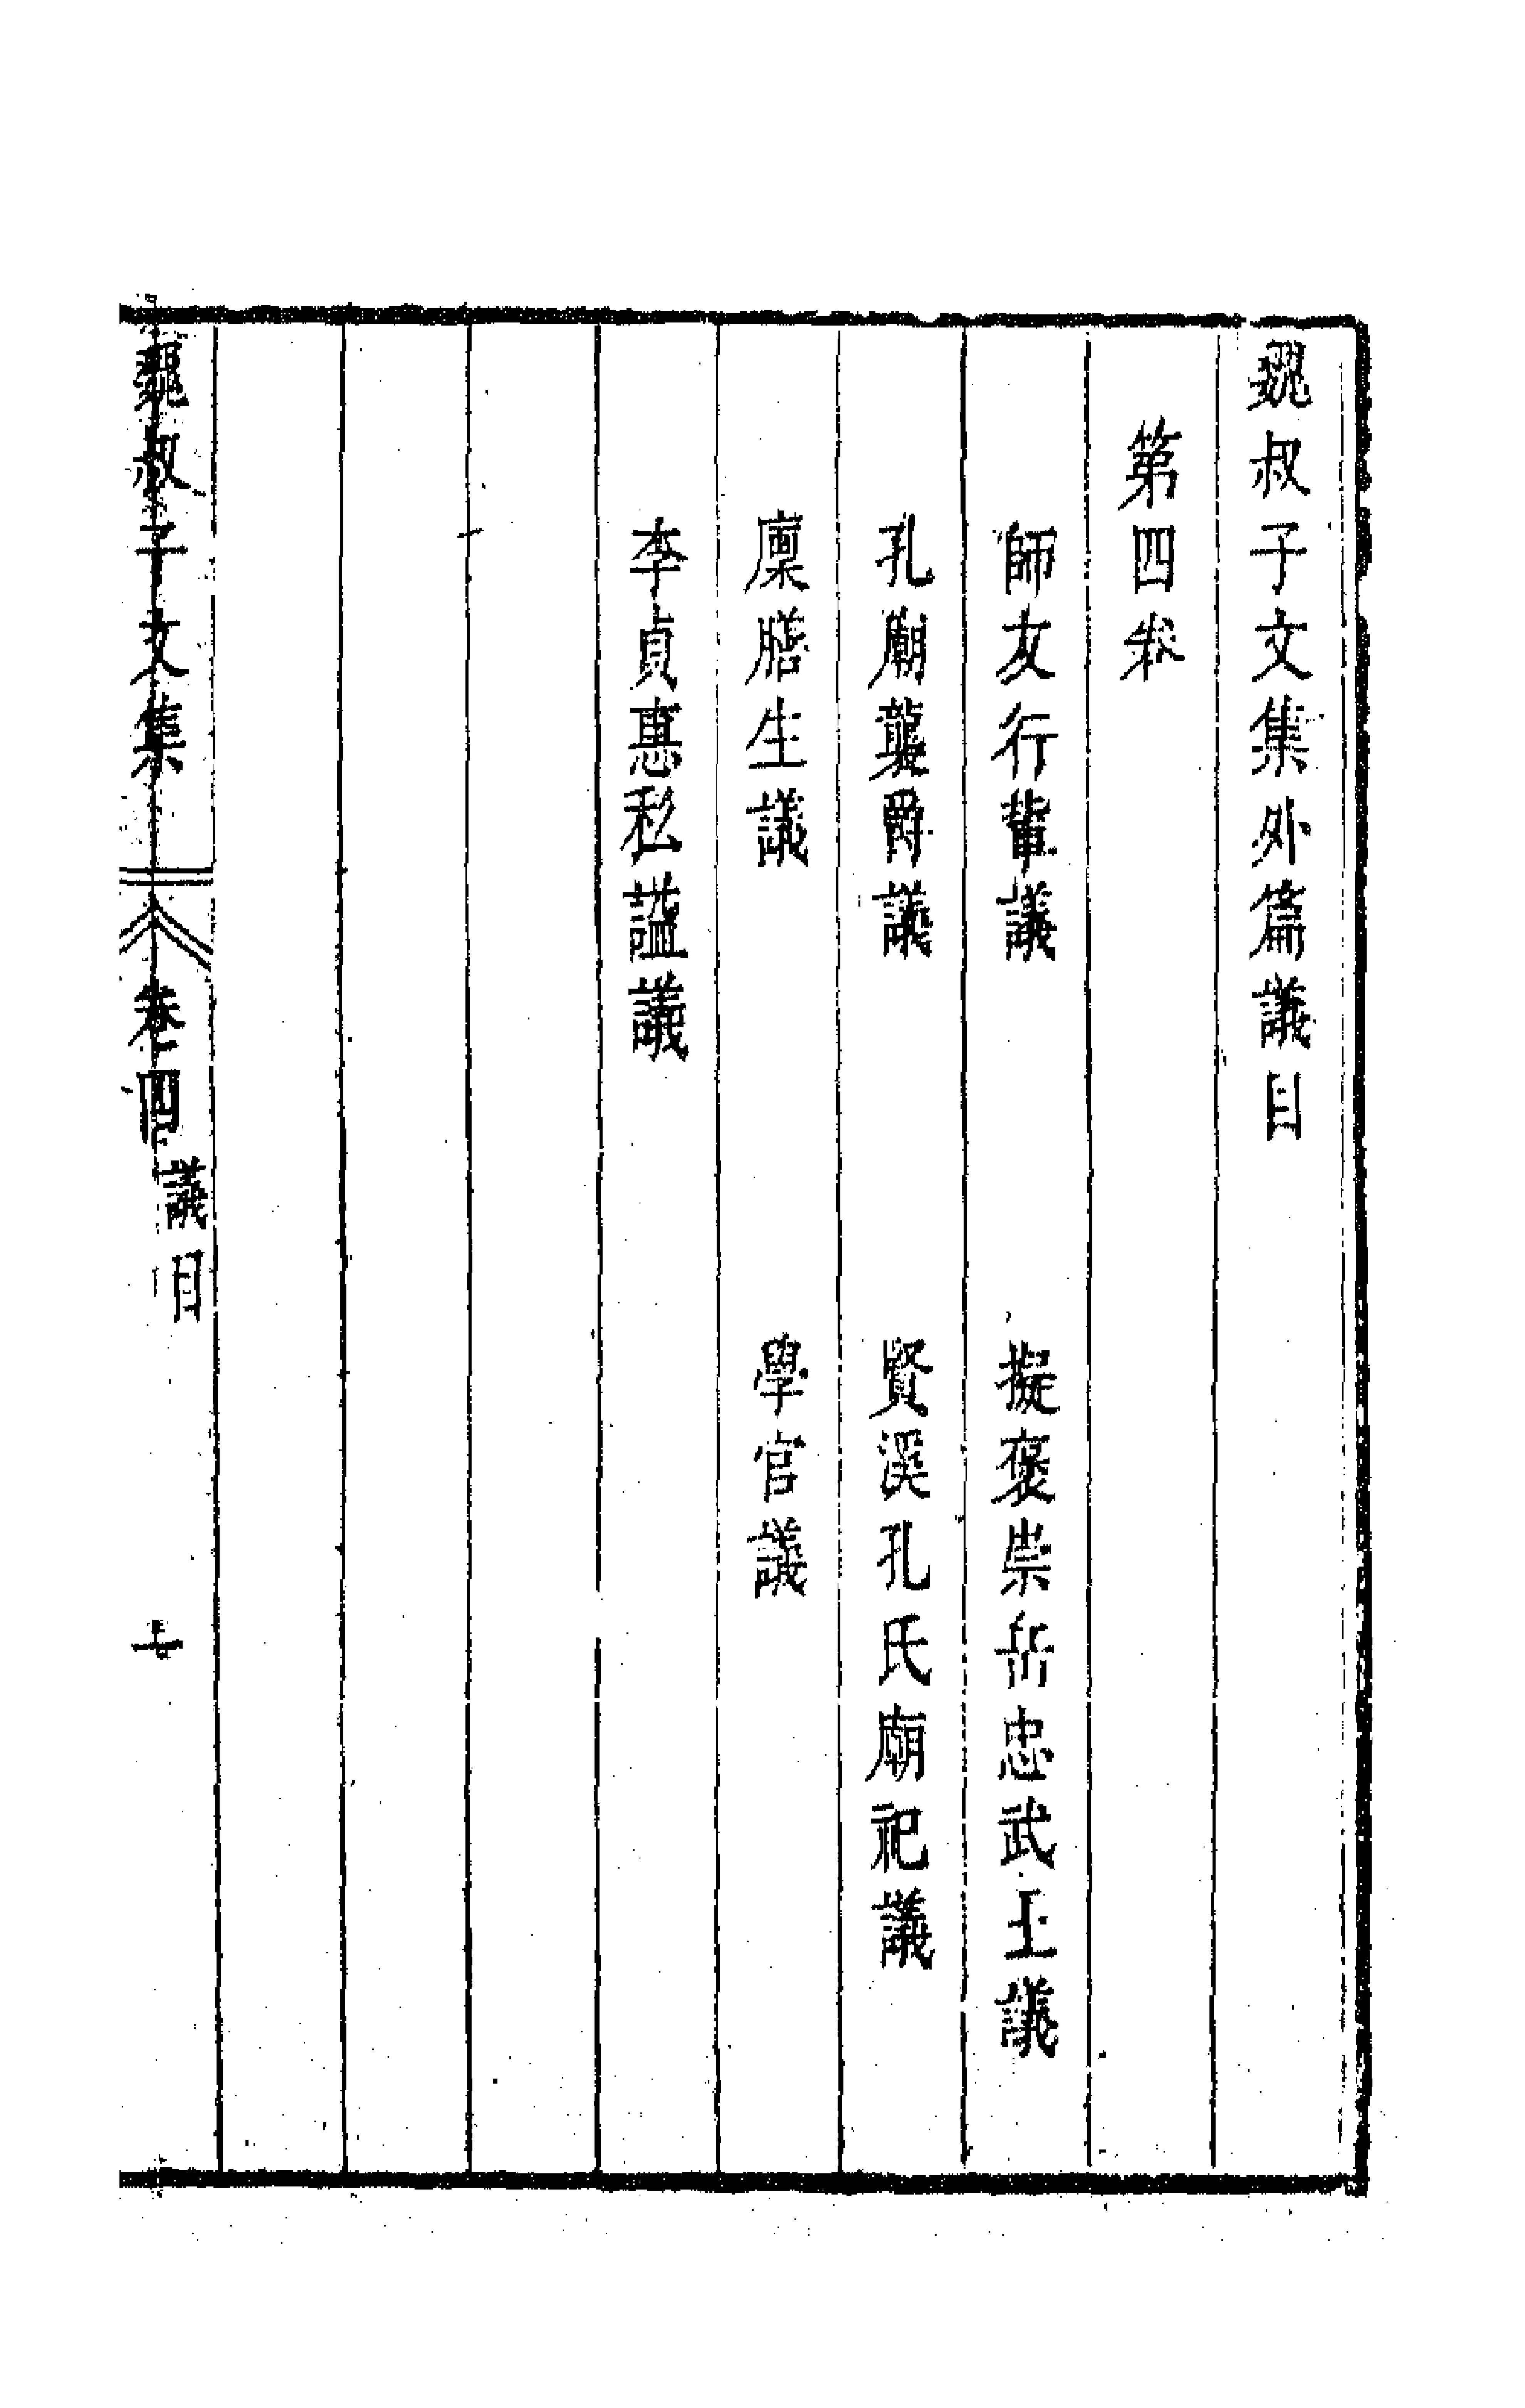 魏叔子文集外篇議目
第四卷
師友行輩議　擬褒崇岳忠武王議
孔廟襲爵議　賢溪孔氏廟祀議
廩膳生議　學官議
李貞惠私諡議
魏叔子文集　卷四　議目　七